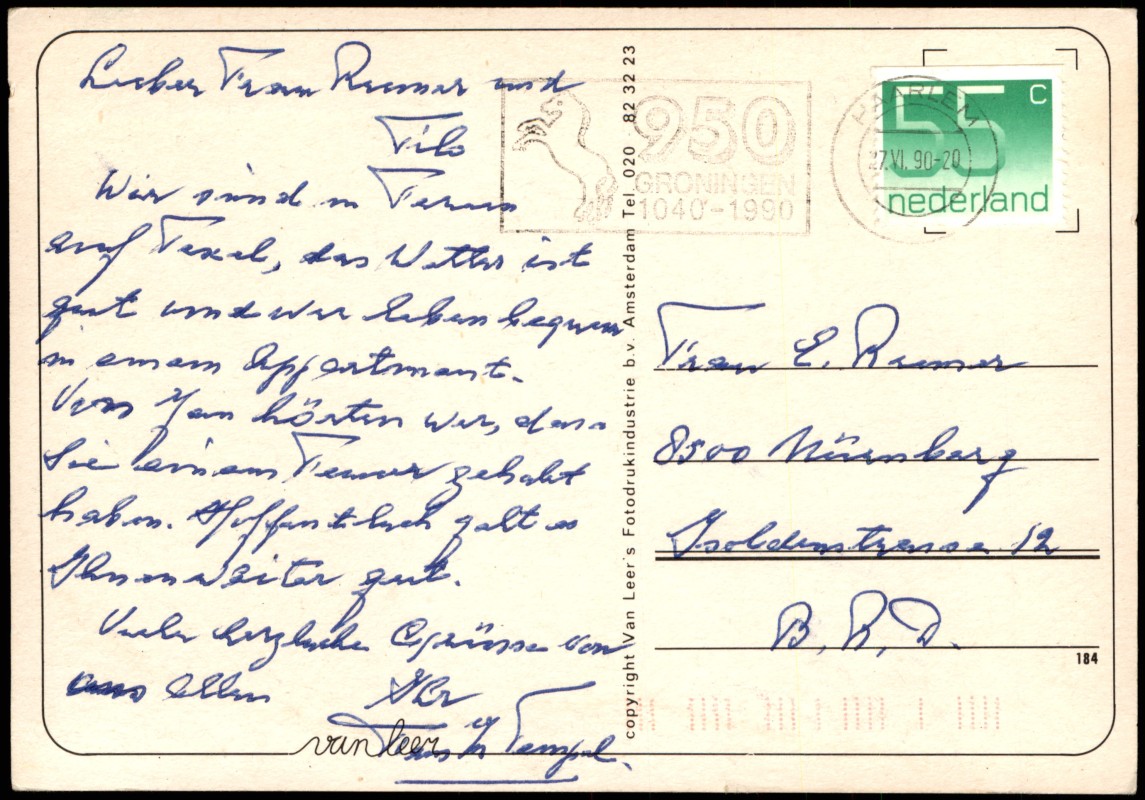 Lieber Frau Remer und
Tilo
Wir sind in Ferien
auf Texel, das Wetter ist
gut und wir leben bequem
in einem Appartment.
Von Jan hörten wir, dass
Sie einem gehabt
haben. Hoffentlich geht es
Ihnen weiter gut.
Viele herzliche Grüsse von
uns allen Ihr
Tempel.
van leer
copyright Van Leer's Fotodrukindustrie b.v. Amsterdam Tel. 020 82 32 23
950
GRONINGEN
1040-1990
HAARLEM
27.VI.90-20
55 C
nederland
Frau E. Remer
8500 Nürnberg
Isoldenstrasse 12
B.R.D.
184